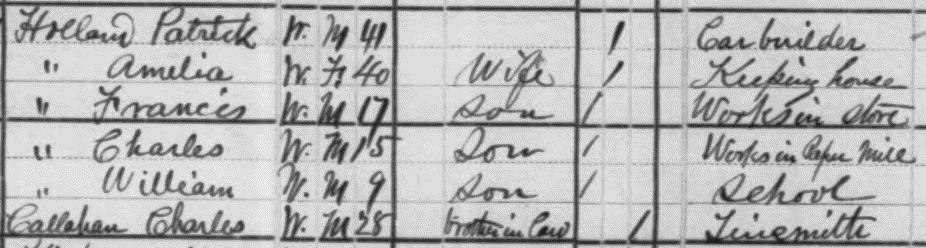 Holland Patrick W. M 41 / Car builder
" Amelia W. F. 40 Wife / Keeping house
" Francis W. M 17 Son / Works in store
" Charles W. M 15 Son / Works in Paper Mill
" William W. M 9 Son / School
Callahan Charles W. M 28 brother in law / Tinsmith